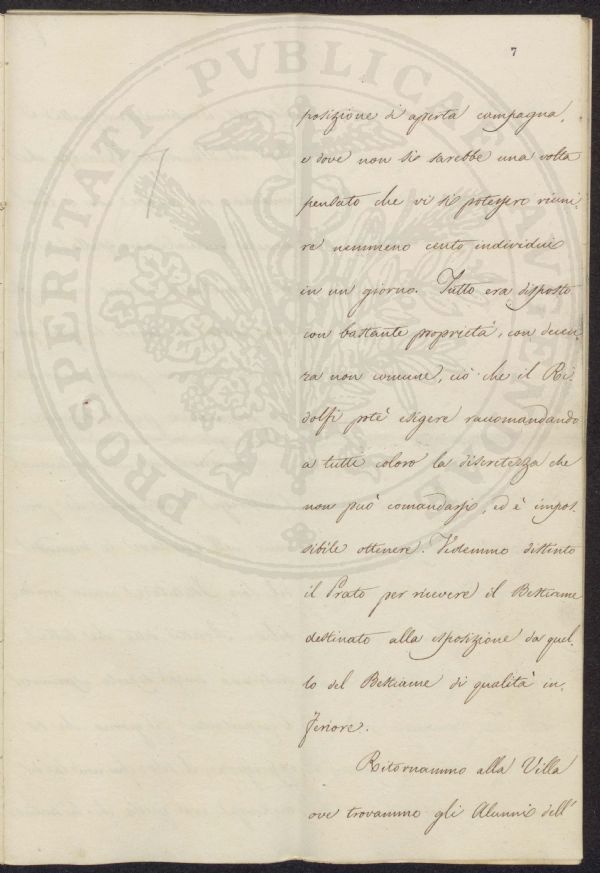 7
posizione di aperta campagna,
e dove non si sarebbe una volta
pensato che vi si potessero riuni-
re nemmeno cento individui
in un giorno. Tutto era disposto
con bastante proprietà, con decen-
za non comune, ciò che il Ri-
dolfi potè esigere raccomandando
a tutti coloro la discretezza che
non può comandarsi, ed è impos-
sibile ottenere. Vedemmo distinto
il Prato per ricevere il Bestiame
destinato alla esposizione da quel-
lo del Bestiame di qualità in-
feriore.
Ritornammo alla Villa
ove trovammo gli Alunni dell'
PROSPERITATI PVBLICAE AVGENDAE